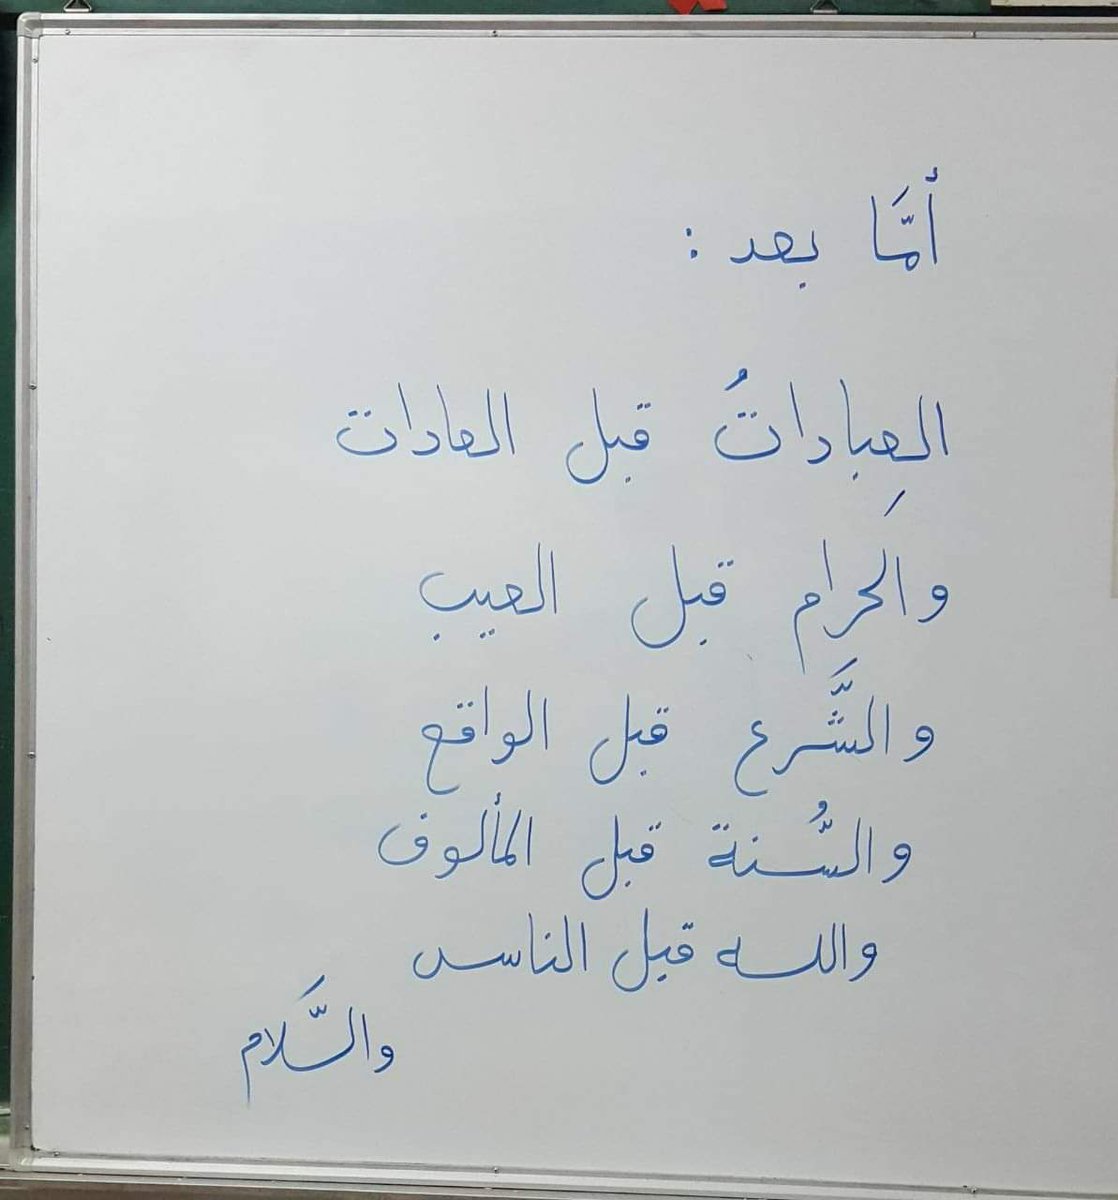 أمَّا بعد :
العِباداتُ قبل العادات
والحَرام قبل العيب
والشَّرع قبل الواقع
والسُّنة قبل المألوف
والله قبل الناس
والسَّلام